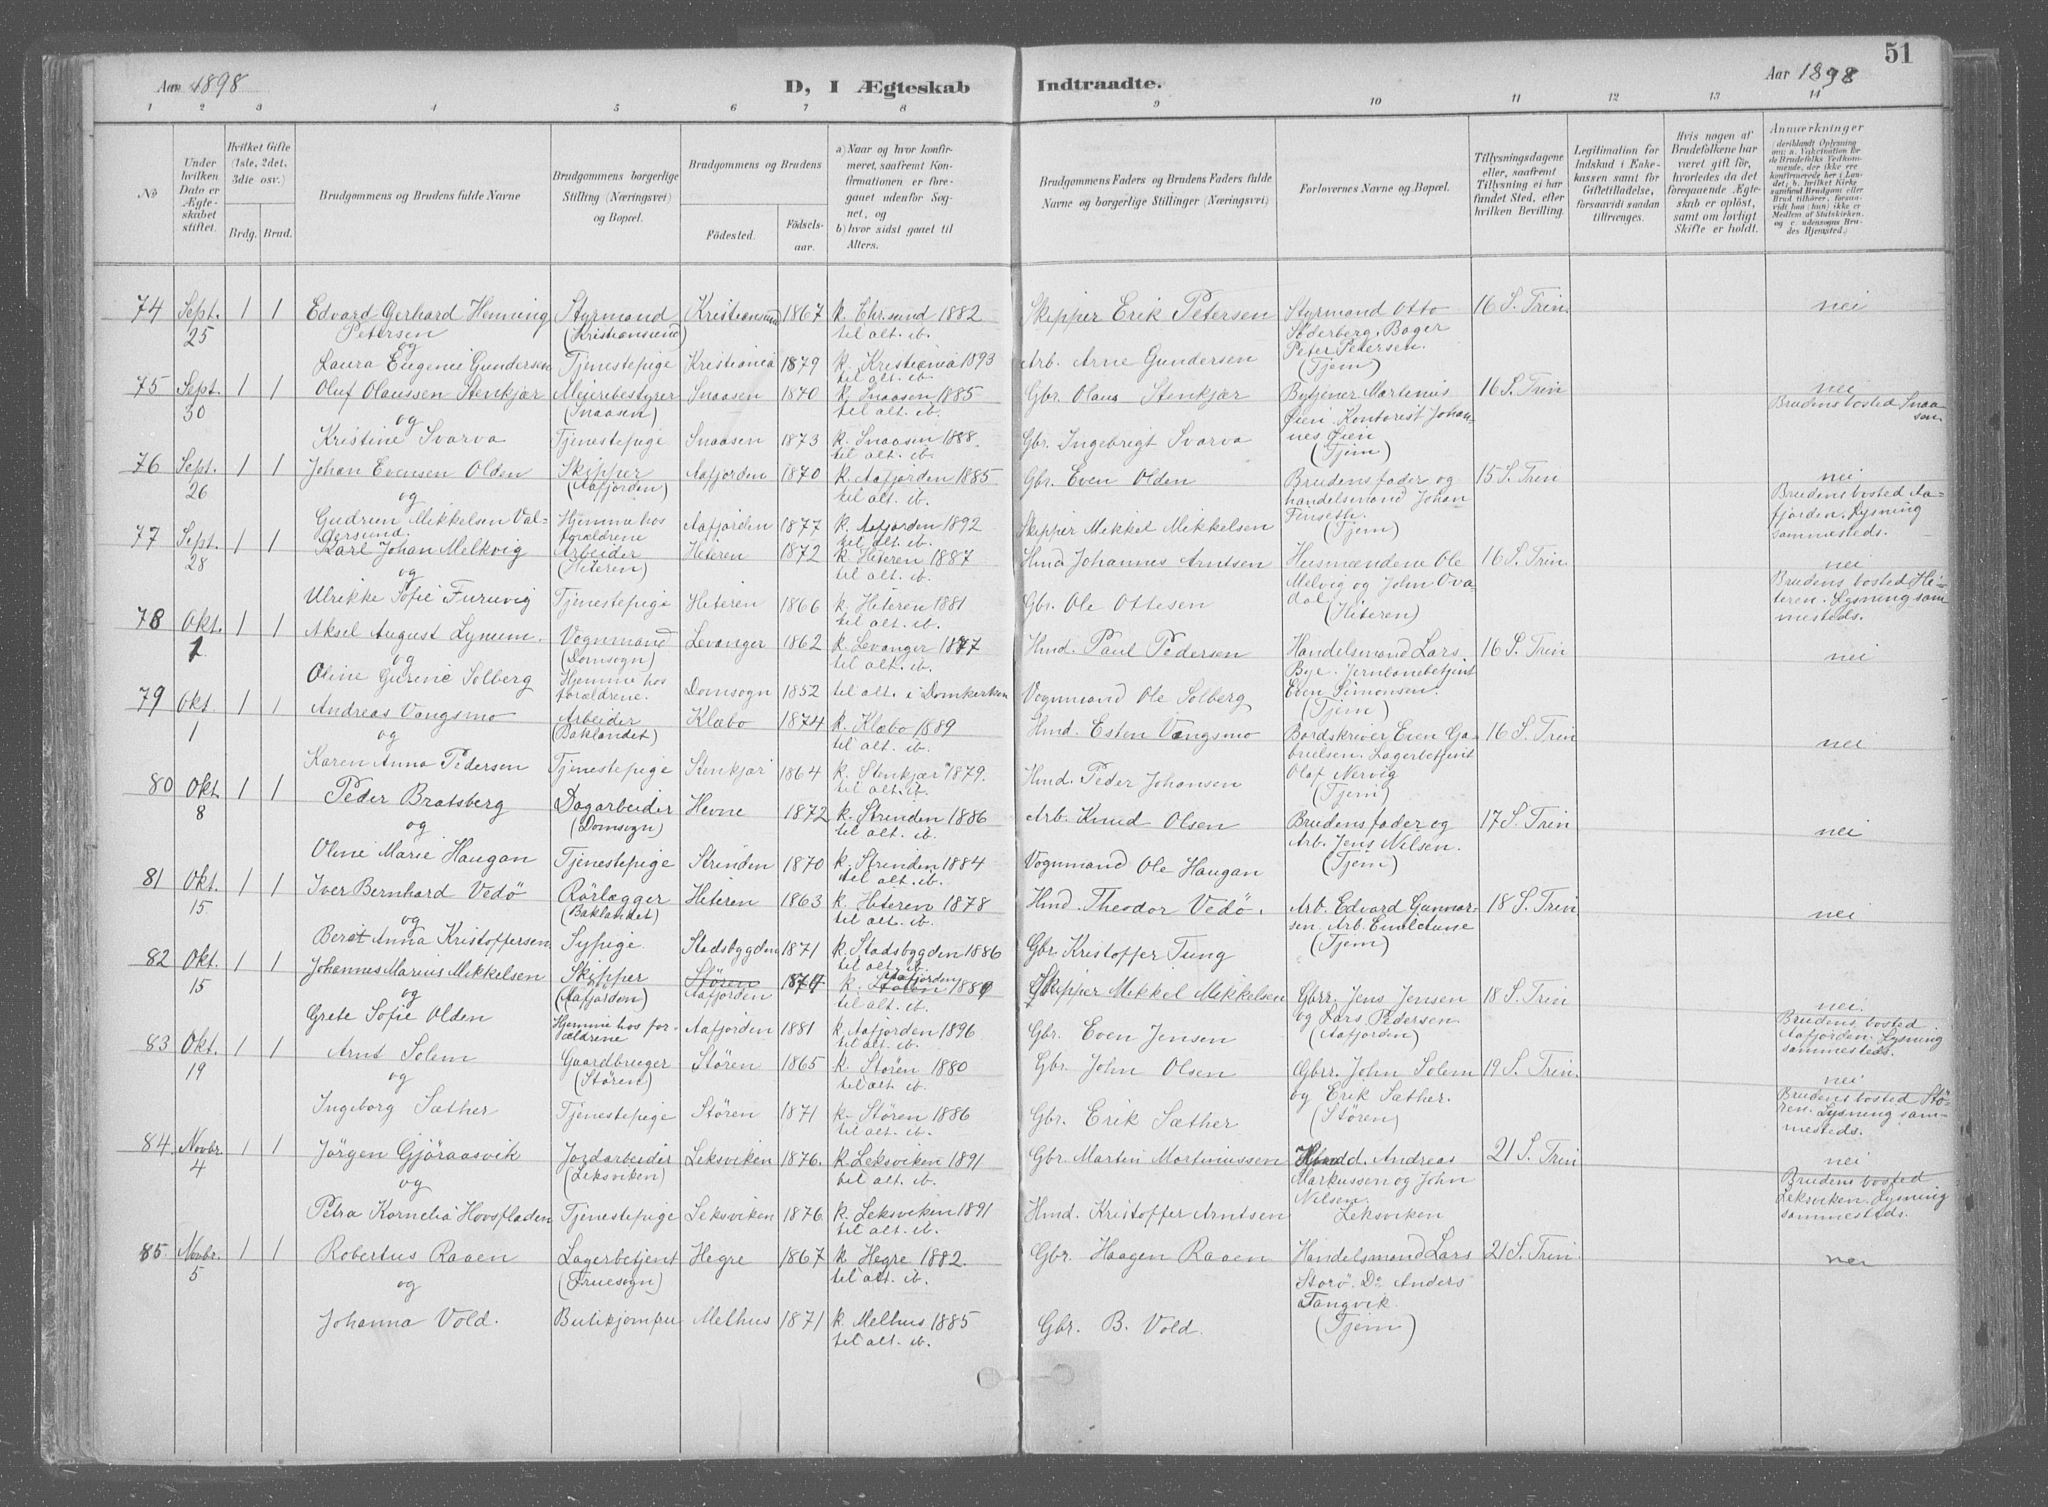 51
Aar 1898
D, I Ægteskab
Indtraadte.
Aar 1898
1 2 3 4 5 6 7 8 9 10 11 12 13 14
No
Under hvilken Dato er Ægteskabet stiftet.
Hvilket Gifte (1ste, 2det, 3die osv.)
Brdg. Brud.
Brudgommens og Brudens fulde Navne
Brudgommens borgerlige Stilling (Næringsvei) og Bopæl.
Brudgommens og Brudens
Fødested.
Fødselsaar.
a) Naar og hvor konfirmeret, saafremt Konfirmationen er foregaaet udenfor Sognet, og
b) hvor sidst gaaet til Alters.
Brudgommens Faders og Brudens Faders fulde Navne og borgerlige Stillinger (Næringsvei)
Forlovernes Navne og Bopæl.
Tillysningsdagene eller, saafremt Tillysning ei har fundet Sted, efter hvilken Bevilling.
Legitimation for Indskud i Enkekassen samt for Giftetilladelse, forsaavidt saadan tiltrænges.
Hvis nogen af Brudefolkene har været gift før, hvorledes da det foregaaende Ægteskab er opløst, samt om lovligt Skifte er holdt.
Anmærkninger (deriblandt Oplysning om: a. Vakcination for de Brudefolks Vedkommende, der ikke ere konfirmerede her i Landet; b. hvilket Kirkesamfund Brudgom eller Brud tilhører, forsaavidt han (hun) ikke er Medlem af Statskirken, og c. udensogns Brudes Hjemsted.)
74 Sept. 25 1 1 Edvard Gerhard Henning Petersen Styrmand (Kristiansund) Kristiansund 1867 k. Chr.sund 1882 til alt. ib. Skipper Erik Petersen Styrmand Otto Söderberg. Bager Peter Petersen. (Tjem) 16 S. Trin. nei
og
Laura Eugenie Gundersen Tjenestepige Kristiania 1879 k. Kristiania 1893 til alt. ib. Arb. Arne Gundersen
75 Sept. 30 1 1 Oluf Olaussen Stenkjær Meieribestyrer (Snaasen) Snaasen 1870 k. Snaasen 1885 til alt. ib. Gbr. Olaus Stenkjær Bytjener Martinus Øien. Kontorist Johannes Øien (Tjem) 16 S. Trin nei Brudens bosted Snaasen.
og
Kristine Svarva Tjenestepige Snaasen 1873 k. Snaasen 1888. til alt. ib. Gbr. Ingebrigt Svarva
76 Sept. 26 1 1 Johan Evensen Olden Skipper (Aafjorden) Aafjorden 1870 k. Aafjorden 1885 til alt. ib. Gbr. Even Olden Brudens fader og handelsmand Johan Finseth. (Tjem) 15 S. Trin nei Brudens bosted Aafjorden. Lysning sammesteds.
og
Gudrun Mikkelsen Valdersund. Hjemme hos forældrene Aafjorden 1877 k. Aafjorden 1892 til alt. ib. Skipper Mikkel Mikkelsen
77 Sept. 28 1 1 Karl Johan Melkvig Arbeider (Hiteren) Hiteren 1872 k. Hiteren 1887 til alt. ib. Hmd. Johannes Arntsen Husmændene Ole Melvig og John Ovadal (Hiteren) 16 S. Trin. nei Brudens bosted Hiteren. Lysning sammesteds.
og
Ulrikke Sofie Furuvig Tjenestepige Hiteren 1866 k. Hiteren 1881 til alt. ib. Gbr. Ole Ottesen
78 Okt. 1 1 1 Aksel August Lynum. Vognmand (Domsogn) Levanger 1862 k. Levanger 1877 til alt. ib. Hmd. Paul Pedersen Handelsmand Lars Bye. Jernbanebetjent Even Simonsen. (Tjem) 16 S. Trin nei
og
Oline Gurine Solberg Hjemme hos forældrene. Domsogn 1852 til alt. i Domkirken Vognmand Ole Solberg
79 Okt. 1 1 1 Andreas Vangsmo Arbeider (Baklandet) Klæbo 1874 k. Klæbo 1889 til alt. ib. Hmd. Esten Vangsmo Bordskriver Even Gabrielsen. Lagerbetjent Olaf Nervig (Tjem) 16 S. Trin nei
og
Karen Anna Pedersen Tjenestepige Stenkjær 1864 k. Stenkjær 1879. til alt. ib. Hmd. Peder Johansen
80 Okt. 8 1 1 Peder Bratsberg Dagarbeider (Domsogn) Hevne 1872 k. Strinden 1886 til alt. ib. Arb. Knud Olsen Brudens fader og Arb. Jens Nilsen. (Tjem) 17 S. Trin nei
og
Oline Marie Haugan Tjenestepige Strinden 1870 k. Strinden 1884 til alt. ib. Vognmand Ole Haugan
81 Okt. 15 1 1 Iver Bernhard Vedö Rörlægger (Baklandet) Hiteren 1863 k. Hiteren 1878 til alt. ib. Hmd. Theodor Vedö. Arb. Edvard Gunnarsen. Arb. Emil Aune (Tjem) 18 S. Trin nei
og
Beret Anna Kristoffersen Sypige. Stadsbygden 1871 k. Stadsbygden 1886 til alt. ib. Gbr. Kristoffer Tung
82 Okt. 15 1 1 Johannes Marius Mikkelsen Skipper (Aafjorden) Stören Aafjorden 1874 k. Stören Aafjorden 1889 til alt. ib. Skipper Mikkel Mikkelsen Gbrr. Jens Jensen og Lars Pedersen (Aafjorden) 18 S. Trin nei. Brudens bosted Aafjorden. Lysning sammesteds.
og
Grete Sofie Olden Hjemme hos forældrene Aafjorden 1881 k. Aafjorden 1896 til alt. ib. Gbr. Even Jensen
83 Okt. 19 1 1 Arnt Solem Gaardbruger (Stören) Stören 1865 k. Stören 1880 til alt. ib. Gbr. John Olsen Gbrr. John Solem og Erik Sæther. (Stören) 19 S. Trin. nei Brudens bosted Stören. Lysning sammesteds.
og
Ingeborg Sæther Tjenestepige Stören 1871 k. Stören 1886 til alt. ib. Gbr. Erik Sæther
84 Novbr. 4 1 1 Jörgen Gjöraasvik Jordarbeider (Leksviken) Leksviken 1876. k. Leksviken 1891 til alt. ib. Gbr. Martin Martinussen Hmd. Andreas Markussen og John Nilsen. Leksviken 21 S. Trin nei Brudens bosted Leksviken. Lysning sammesteds.
og
Petra Kornelia Hovsfladen Tjenestepige Leksviken 1876 k. Leksviken 1891 til alt. ib. Hmd. Kristoffer Arntsen
85 Novbr. 5 1 1 Robertus Raaen Lagerbetjent (Fruesogn) Hegre 1867 k. Hegre 1882. til alt. ib. Gbr. Haagen Raaen Handelsmand Lars Storö. Do Anders Tangvik. (Tjem) 21 S. Trin. nei
og
Johanna Vold. Butikjomfru Melhus 1871 k. Melhus 1885 til alt. ib. Gbr. B. Vold.